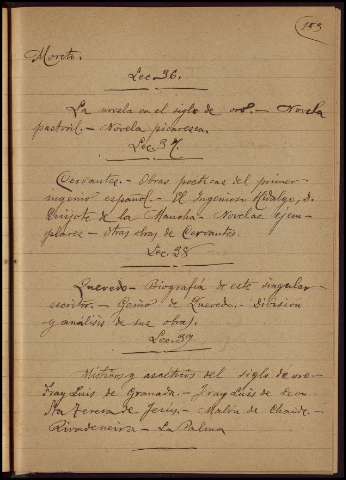 153
Moreto.
Lec. 36.
La novela en el siglo de oro. - Novela
pastoril. - Novela picaresca.
Lec. 37.
Cervantes. - Obras poéticas del primer
ingenio español. - El Ingenioso Hidalgo, D.
Quijote de la Mancha - Novelas ejem-
plares - Otras obras de Cervantes.
Lec. 38
Quevedo - Biografía de este singular
escritor. - Genio de Quevedo. - División
y análisis de sus obras.
Lec. 39
Místicos y ascéticos del siglo de oro -
Fray Luis de Granada. - Fray Luis de León
Sta Teresa de Jesús. - Malón de Chaide. -
Rivadeneira - La Palma